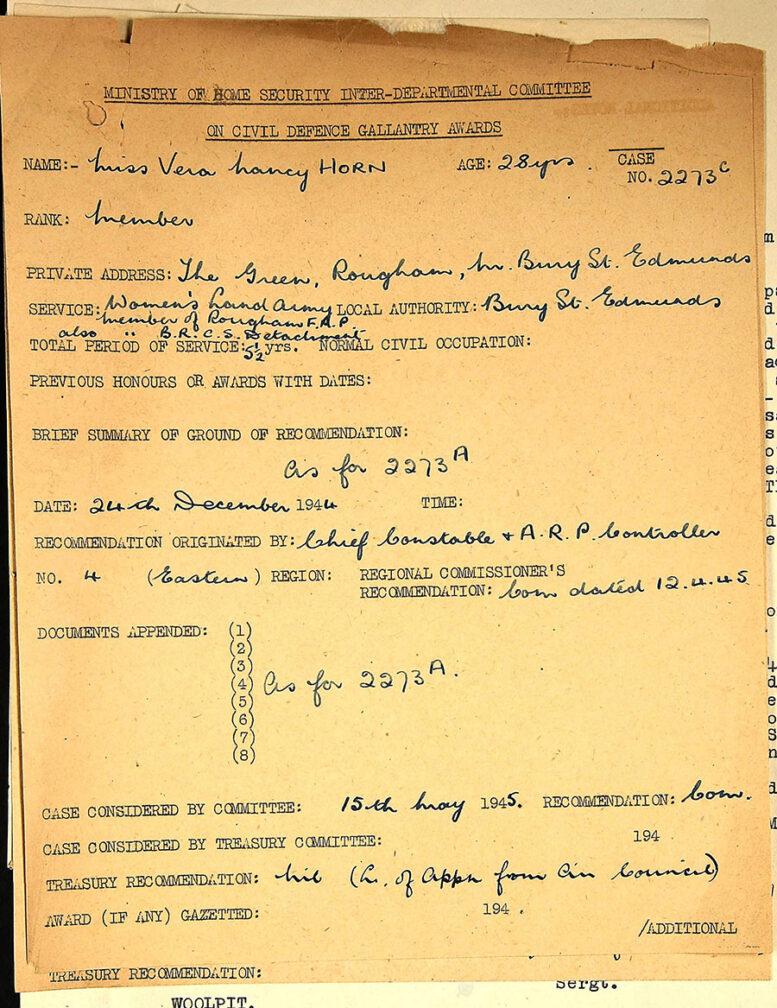 MINISTRY OF HOME SECURITY INTER-DEPARTMENTAL COMMITTEE
ON CIVIL DEFENCE GALLANTRY AWARDS
NAME:- Miss Vera Nancy HORN AGE: 28 yrs. CASE NO. 2273C
RANK: Member
PRIVATE ADDRESS: The Green, Rougham, Nr. Bury St. Edmunds
SERVICE: Women's Land Army LOCAL AUTHORITY: Bury St. Edmunds
member of Rougham F.A.P
also " B.R.C.S. Detachment
TOTAL PERIOD OF SERVICE: 5½ yrs. NORMAL CIVIL OCCUPATION:
PREVIOUS HONOURS OR AWARDS WITH DATES:
BRIEF SUMMARY OF GROUND OF RECOMMENDATION:
As for 2273A
DATE: 24th December 1944 TIME:
RECOMMENDATION ORIGINATED BY: Chief Constable & A.R.P. Controller
NO. 4 (Eastern) REGION: REGIONAL COMMISSIONER'S
RECOMMENDATION: Com dated 12.4.45
DOCUMENTS APPENDED: (1)
(2)
(3)
(4) As for 2273A.
(5)
(6)
(7)
(8)
CASE CONSIDERED BY COMMITTEE: 15th May 1945. RECOMMENDATION: Com.
CASE CONSIDERED BY TREASURY COMMITTEE: 194
TREASURY RECOMMENDATION: Nil (L. of Appn from Air Council)
AWARD (IF ANY) GAZETTED: 194.
/ADDITIONAL
TREASURY RECOMMENDATION:
Sergt.
WOOLPIT.